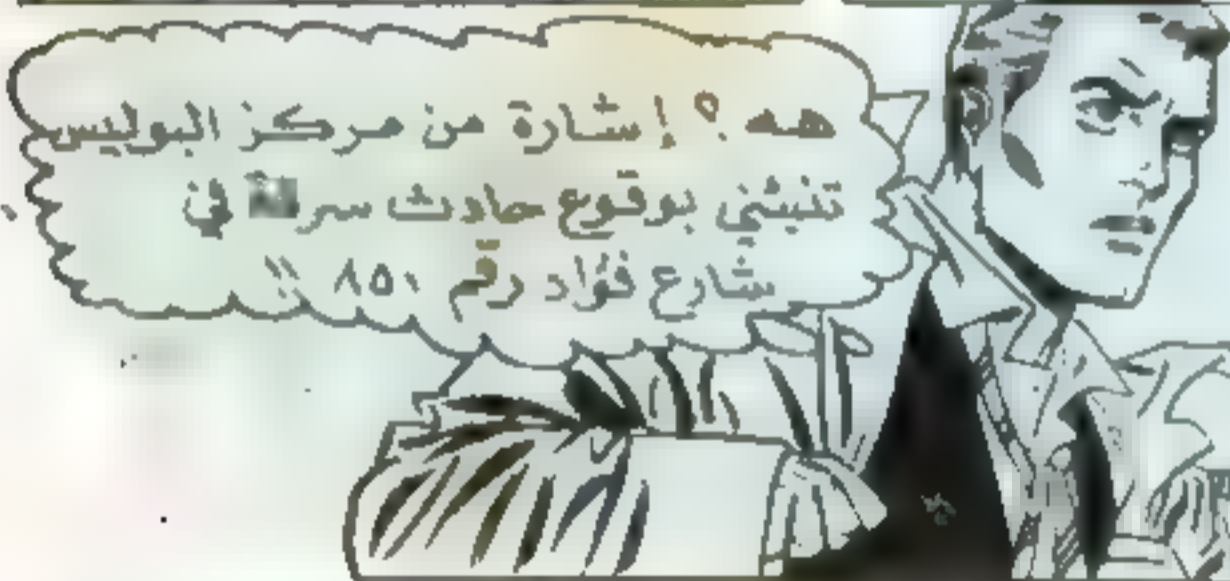 هه ؟ إشارة من مركز البوليس
تنبئني بوقوع حادث في
شارع فؤاد رقم ٨٥١ !!